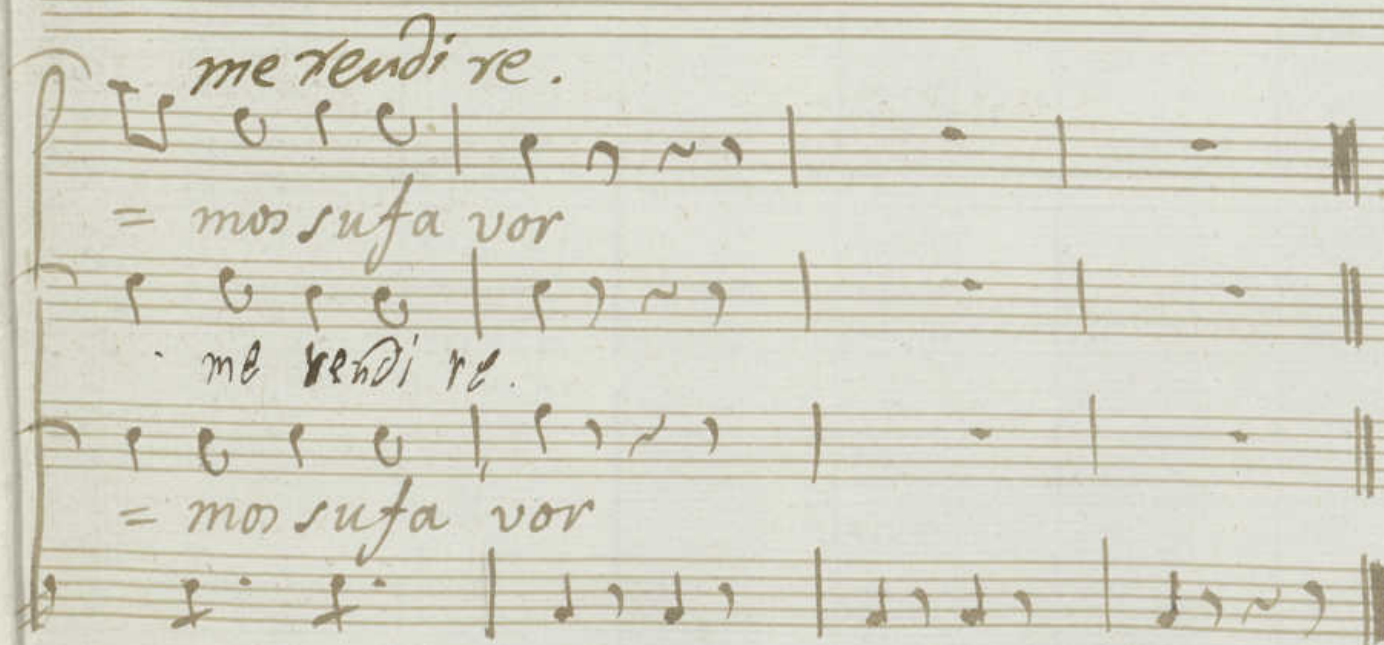 me rendi re.
= mos su fa vor
me rendi re.
= mos su fa vor